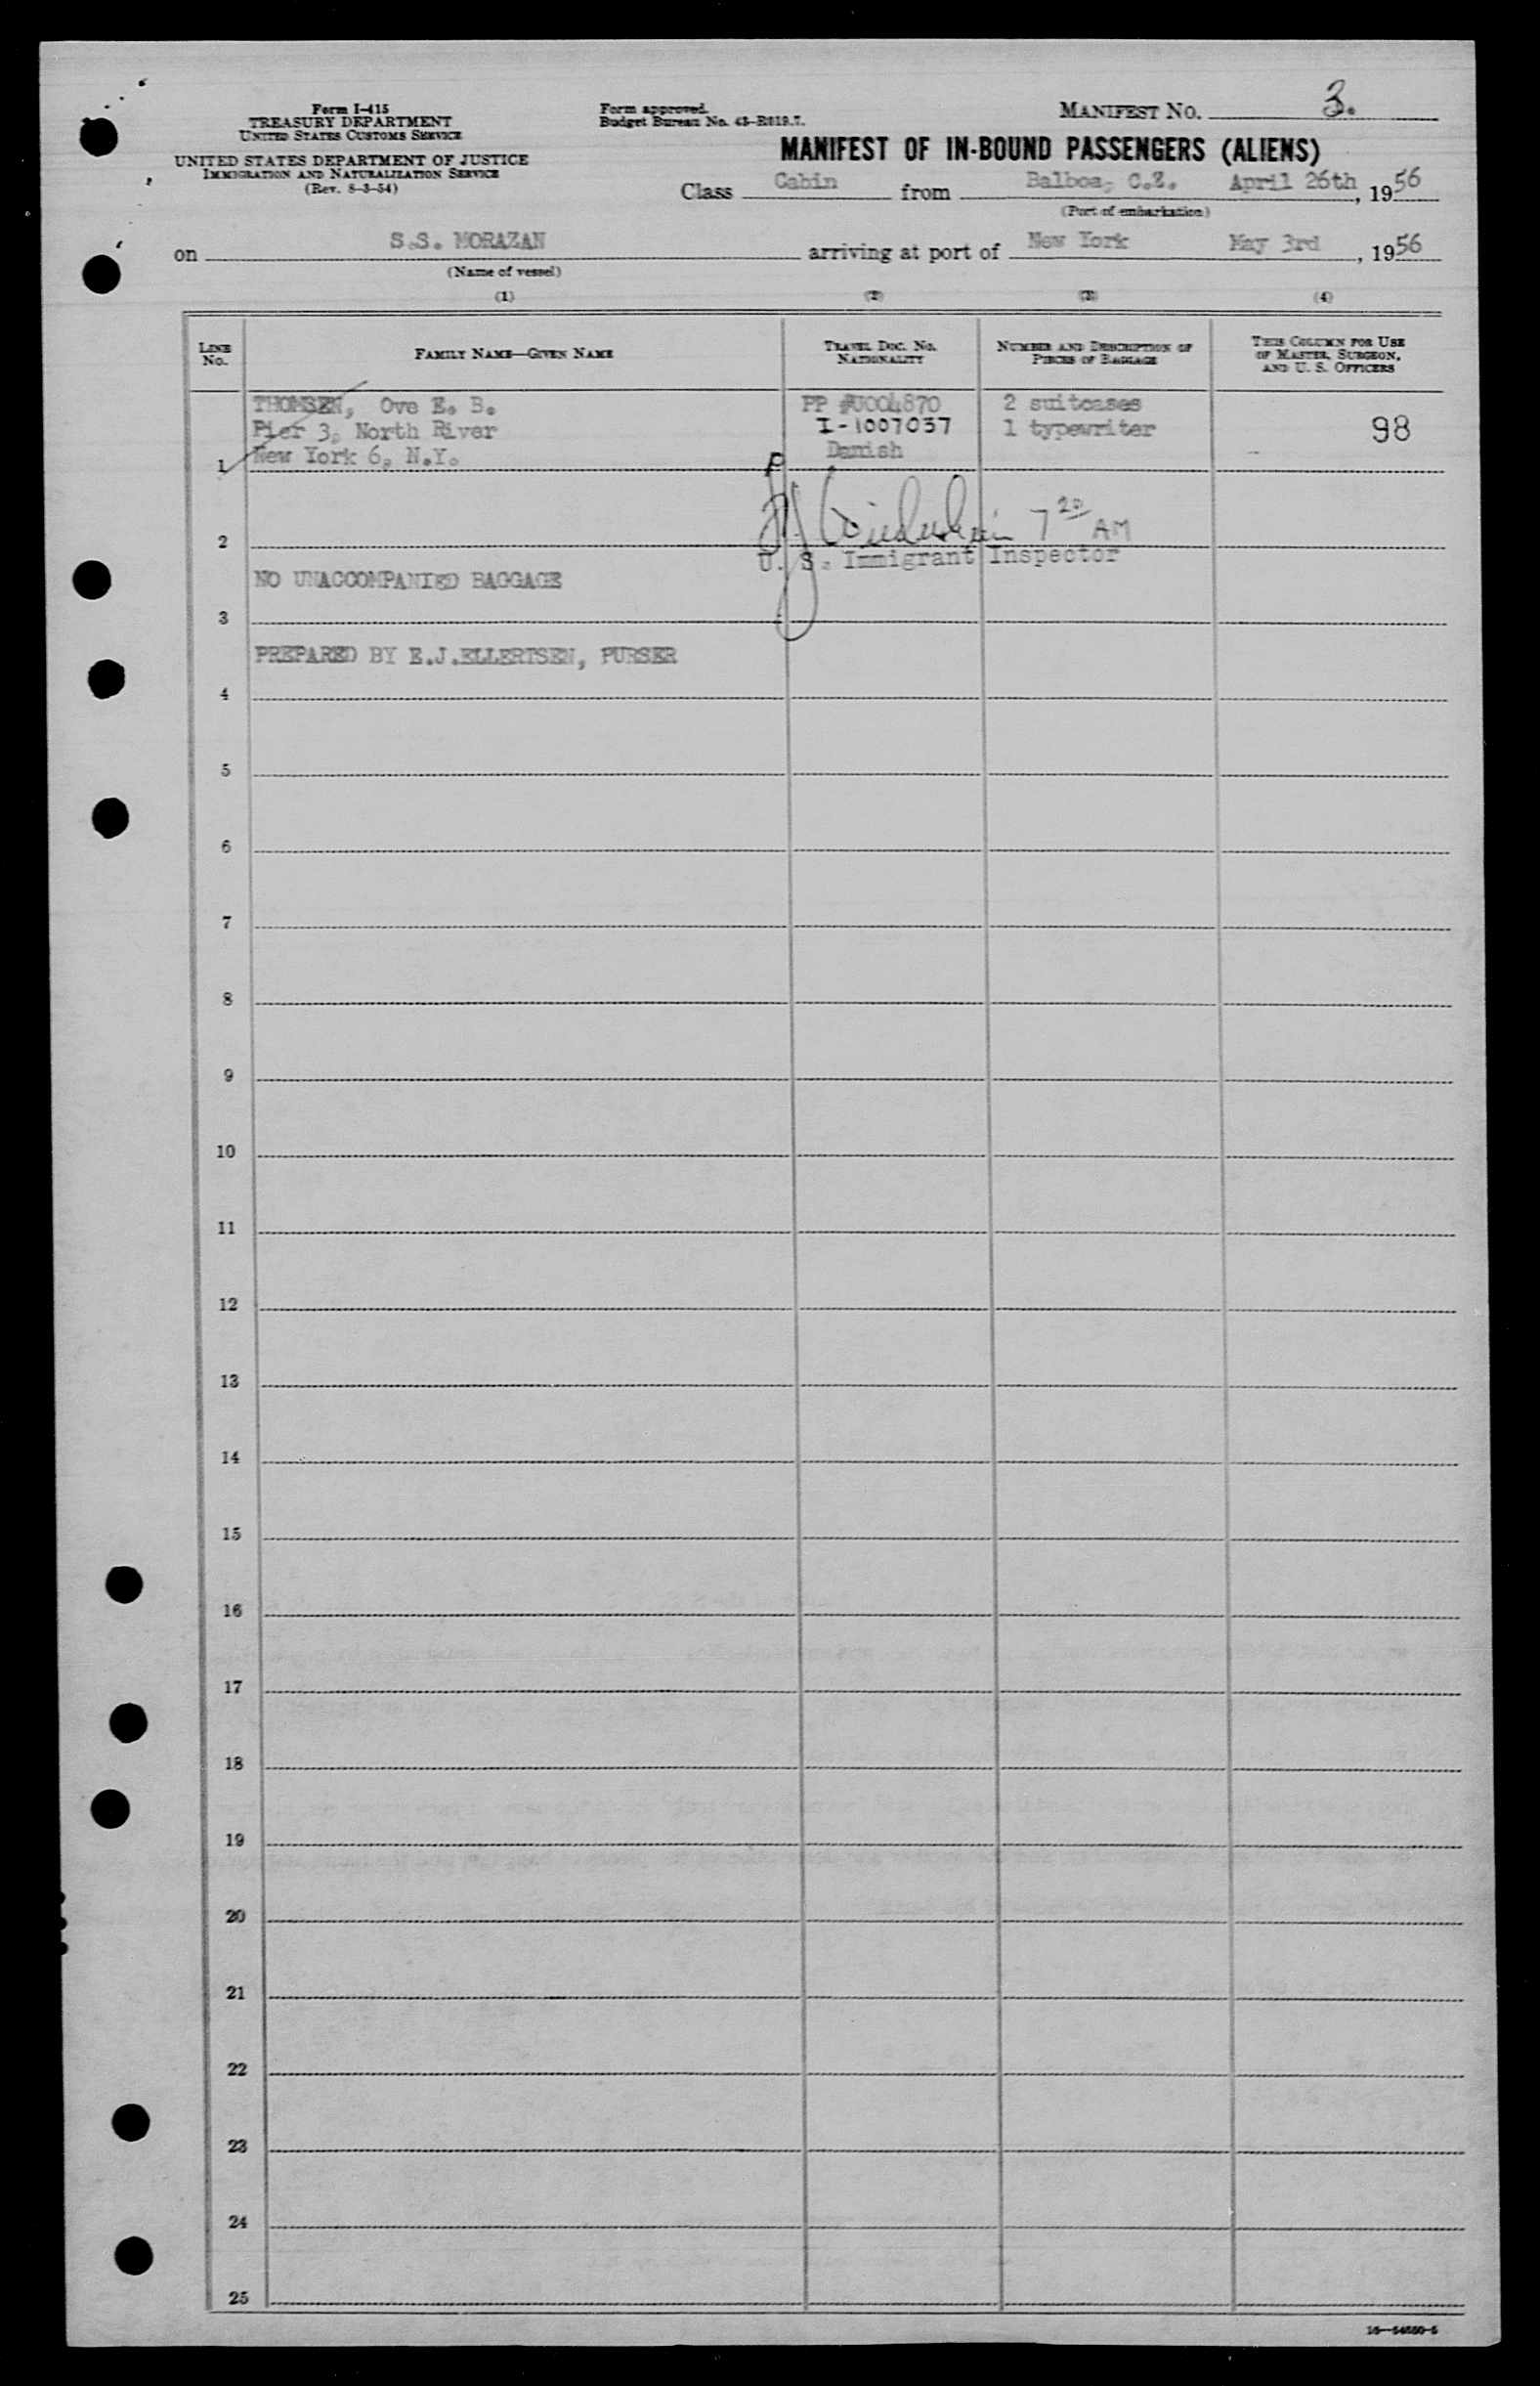 Form I-415
TREASURY DEPARTMENT
UNITED STATES CUSTOMS SERVICE
UNITED STATES DEPARTMENT OF JUSTICE
IMMIGRATION AND NATURALIZATION SERVICE
(Rev. 8-3-54)
Form approved.
Budget Bureau No. 43-R019.7.
MANIFEST NO. 3.
MANIFEST OF IN-BOUND PASSENGERS (ALIENS)
Class Cabin from Balboa, C.Z. April 26th, 1956
(Port of embarkation)
on S.S. MORAZAN arriving at port of New York May 3rd, 1956
(Name of vessel)
(1) (2) (3) (4)
LINE NO.
FAMILY NAME—GIVEN NAME
TRAVEL DOC. NO.
NATIONALITY
NUMBER AND DESCRIPTION OF
PIECES OF BAGGAGE
THIS COLUMN FOR USE
OF MASTER, SURGEON,
AND U. S. OFFICERS
THOMSEN, Ove E. B. PP #U004870 2 suitcases
Pier 3, North River I-1007037 1 typewriter 98
1 New York 6, N.Y. Danish
P
7 20 AM
2
U. S. Immigrant Inspector
NO UNACCOMPANIED BAGGAGE
3
PREPARED BY E.J.ELLERTSEN, PURSER
4
5
6
7
8
9
10
11
12
13
14
15
16
17
18
19
20
21
22
23
24
25